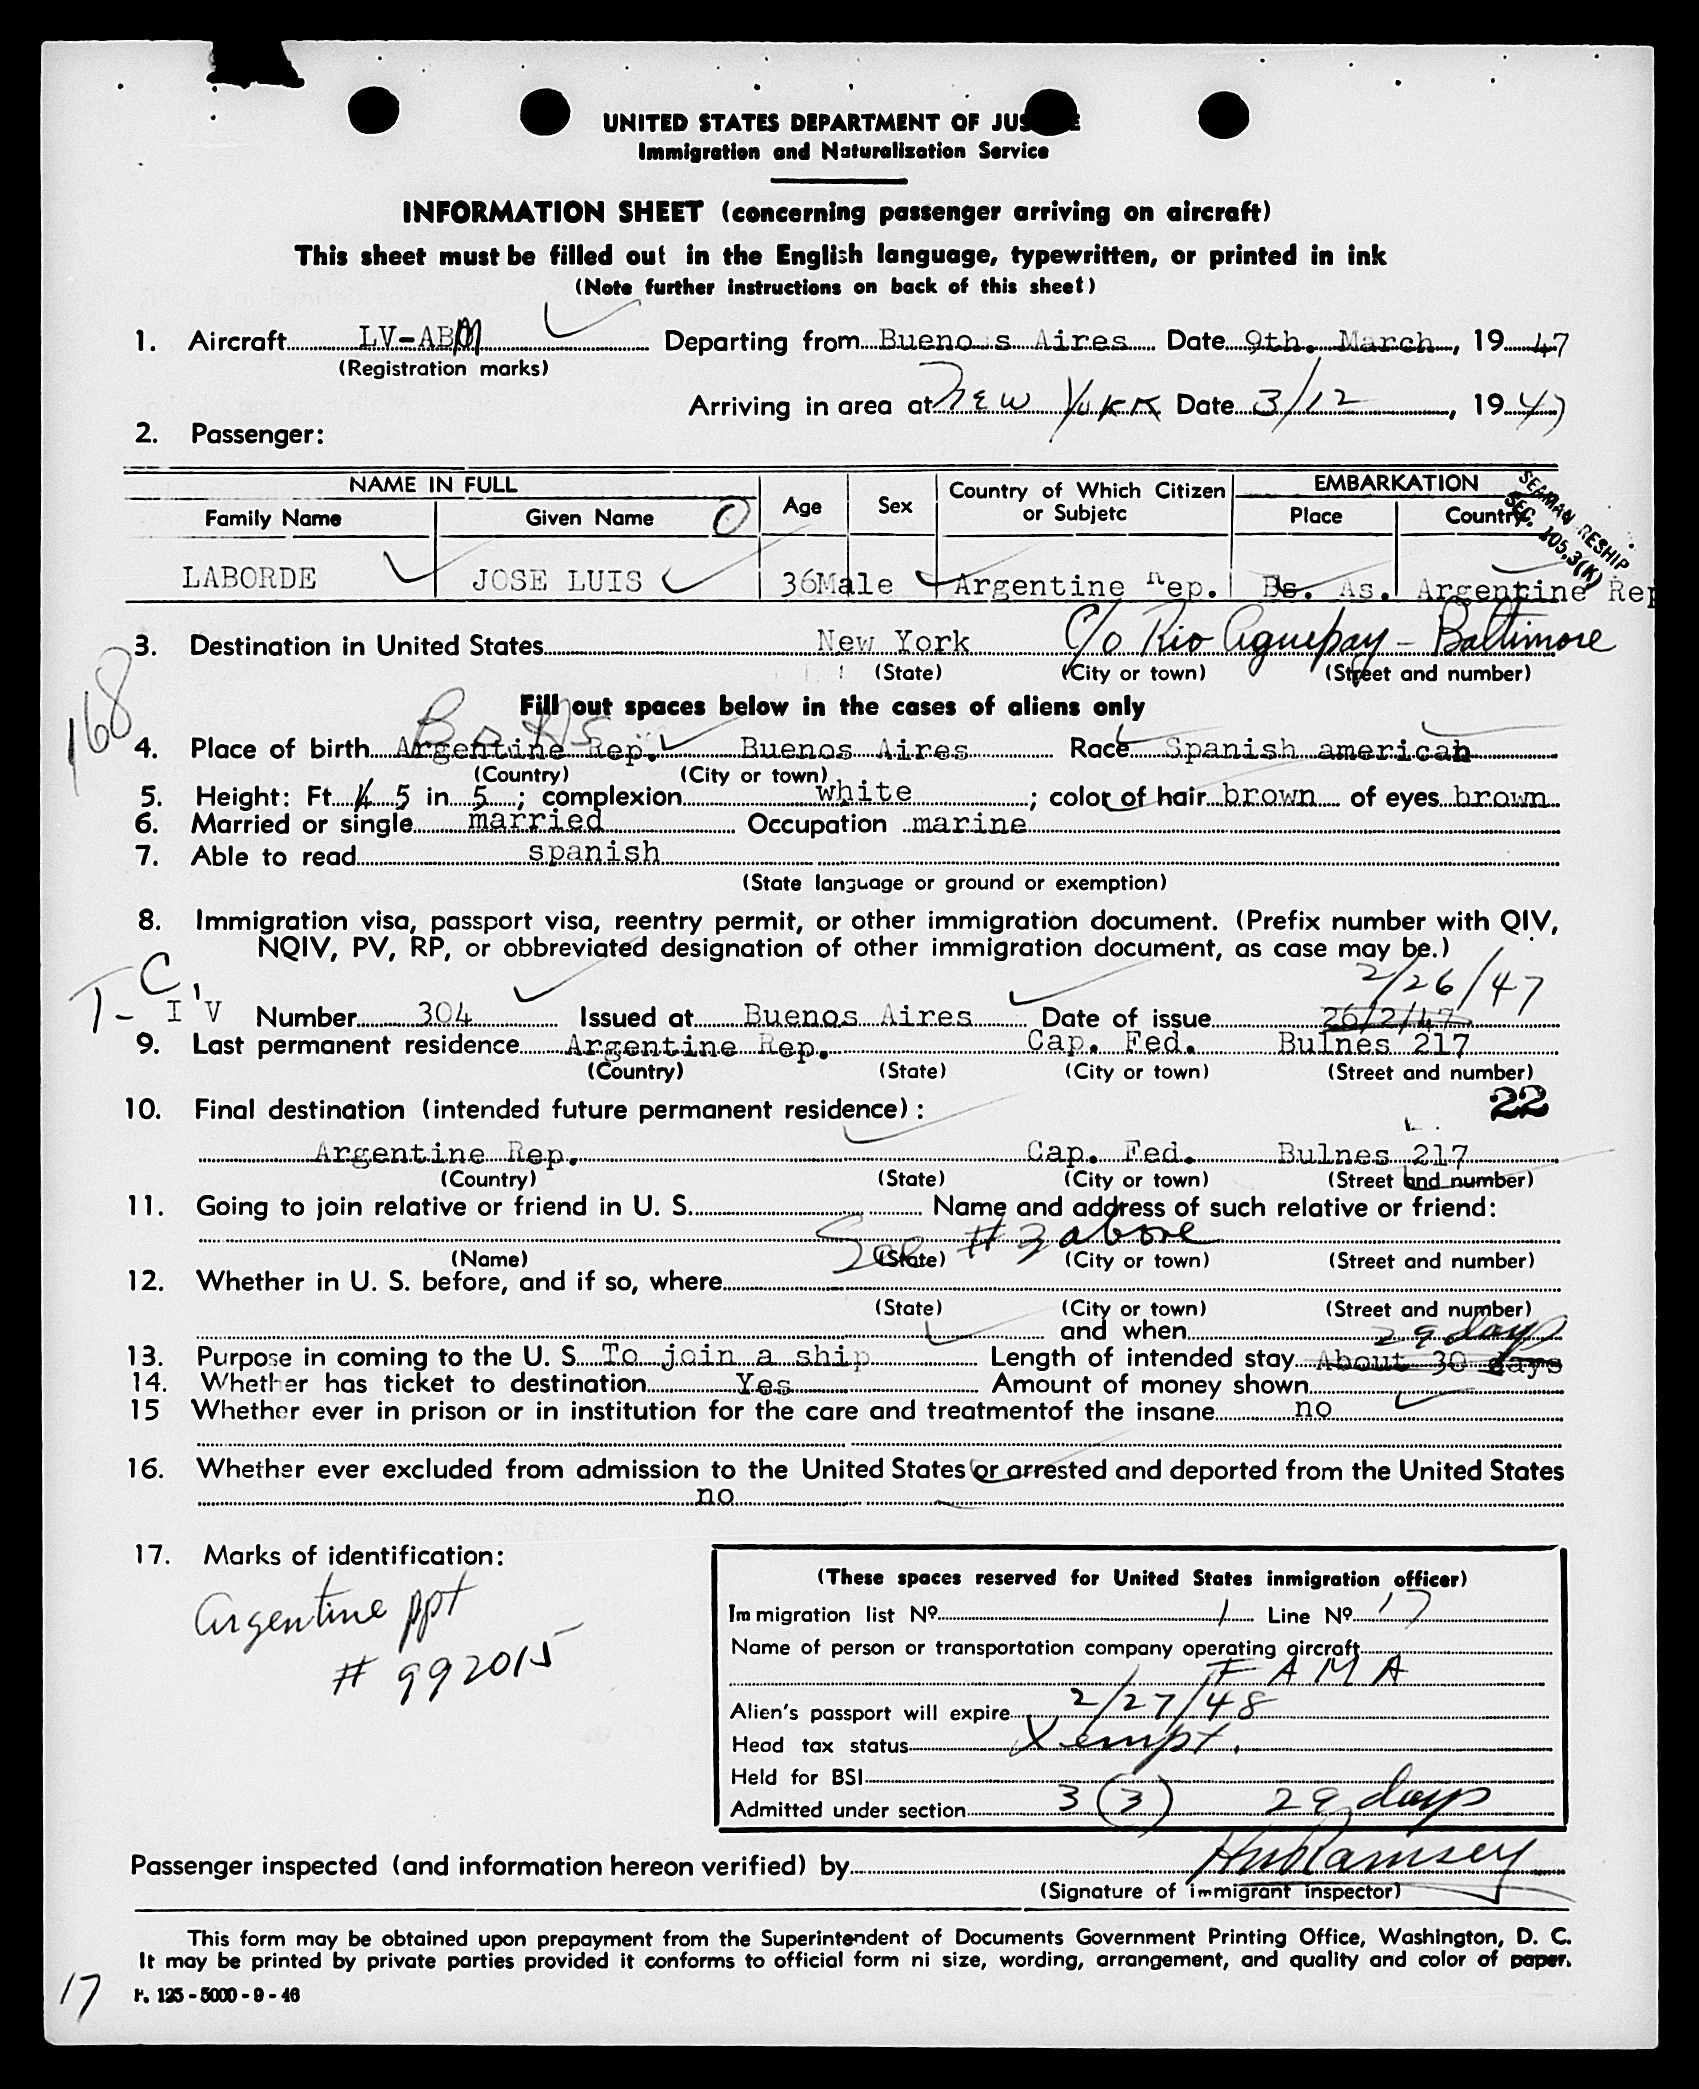 UNITED STATES DEPARTMENT OF JUSTICE
Immigration and Naturalization Service
INFORMATION SHEET (concerning passenger arriving on aircraft)
This sheet must be filled out in the English language, typewritten, or printed in ink
(Note further instructions on back of this sheet)
1. Aircraft LV-ABM Departing from Buenos Aires Date 9th. March, 1947
(Registration marks)
Arriving in area at New York Date 3/12, 1947
2. Passenger:
NAME IN FULL Age Sex Country of Which Citizen or Subjetc EMBARKATION
Family Name Given Name Place Country
SEAMAN RESHIP
SEC. 105.3(K)
LABORDE JOSE LUIS 36 Male Argentine Rep. Bs. As. Argentine Rep
3. Destination in United States New York C/o Rio Aguapay - Baltimore
(State) (City or town) (Street and number)
168
Fill out spaces below in the cases of aliens only
4. Place of birth Argentine Rep. Buenos Aires Race Spanish american
(Country) (City or town)
5. Height: Ft. 5 in 5; complexion white; color of hair brown of eyes brown
6. Married or single married Occupation marine
7. Able to read spanish
(State language or ground or exemption)
8. Immigration visa, passport visa, reentry permit, or other immigration document. (Prefix number with QIV,
NQIV, PV, RP, or obbreviated designation of other immigration document, as case may be.)
2/26/47
T-C IV Number 304 Issued at Buenos Aires Date of issue 26/2/47
9. Last permanent residence Argentine Rep. Cap. Fed. Bulnes 217
(Country) (State) (City or town) (Street and number)
22
10. Final destination (intended future permanent residence):
Argentine Rep. Cap. Fed. Bulnes 217
(Country) (State) (City or town) (Street and number)
11. Going to join relative or friend in U. S. Name and address of such relative or friend:
See # 3 above
(Name) (State) (City or town) (Street and number)
12. Whether in U. S. before, and if so, where
(State) (City or town) (Street and number)
and when
29 days
13. Purpose in coming to the U. S. To join a ship Length of intended stay About 30 days
14. Whether has ticket to destination Yes Amount of money shown
15 Whether ever in prison or in institution for the care and treatmentof the insane no
16. Whether ever excluded from admission to the United States or arrested and deported from the United States
no
17. Marks of identification:
Argentine ppt
# 992015
(These spaces reserved for United States inmigration officer)
Immigration list Nº 1 Line Nº 17
Name of person or transportation company operating aircraft
FAMA
Alien's passport will expire 2/27/48
Head tax status Xempt.
Held for BSI
Admitted under section 3(3) 29 days
Passenger inspected (and information hereon verified) by HmRamsey
(Signature of immigrant inspector)
This form may be obtained upon prepayment from the Superintendent of Documents Government Printing Office, Washington, D. C.
It may be printed by private parties provided it conforms to official form ni size, wording, arrangement, and quality and color of paper.
17
F. 125 - 5000 - 9 - 46